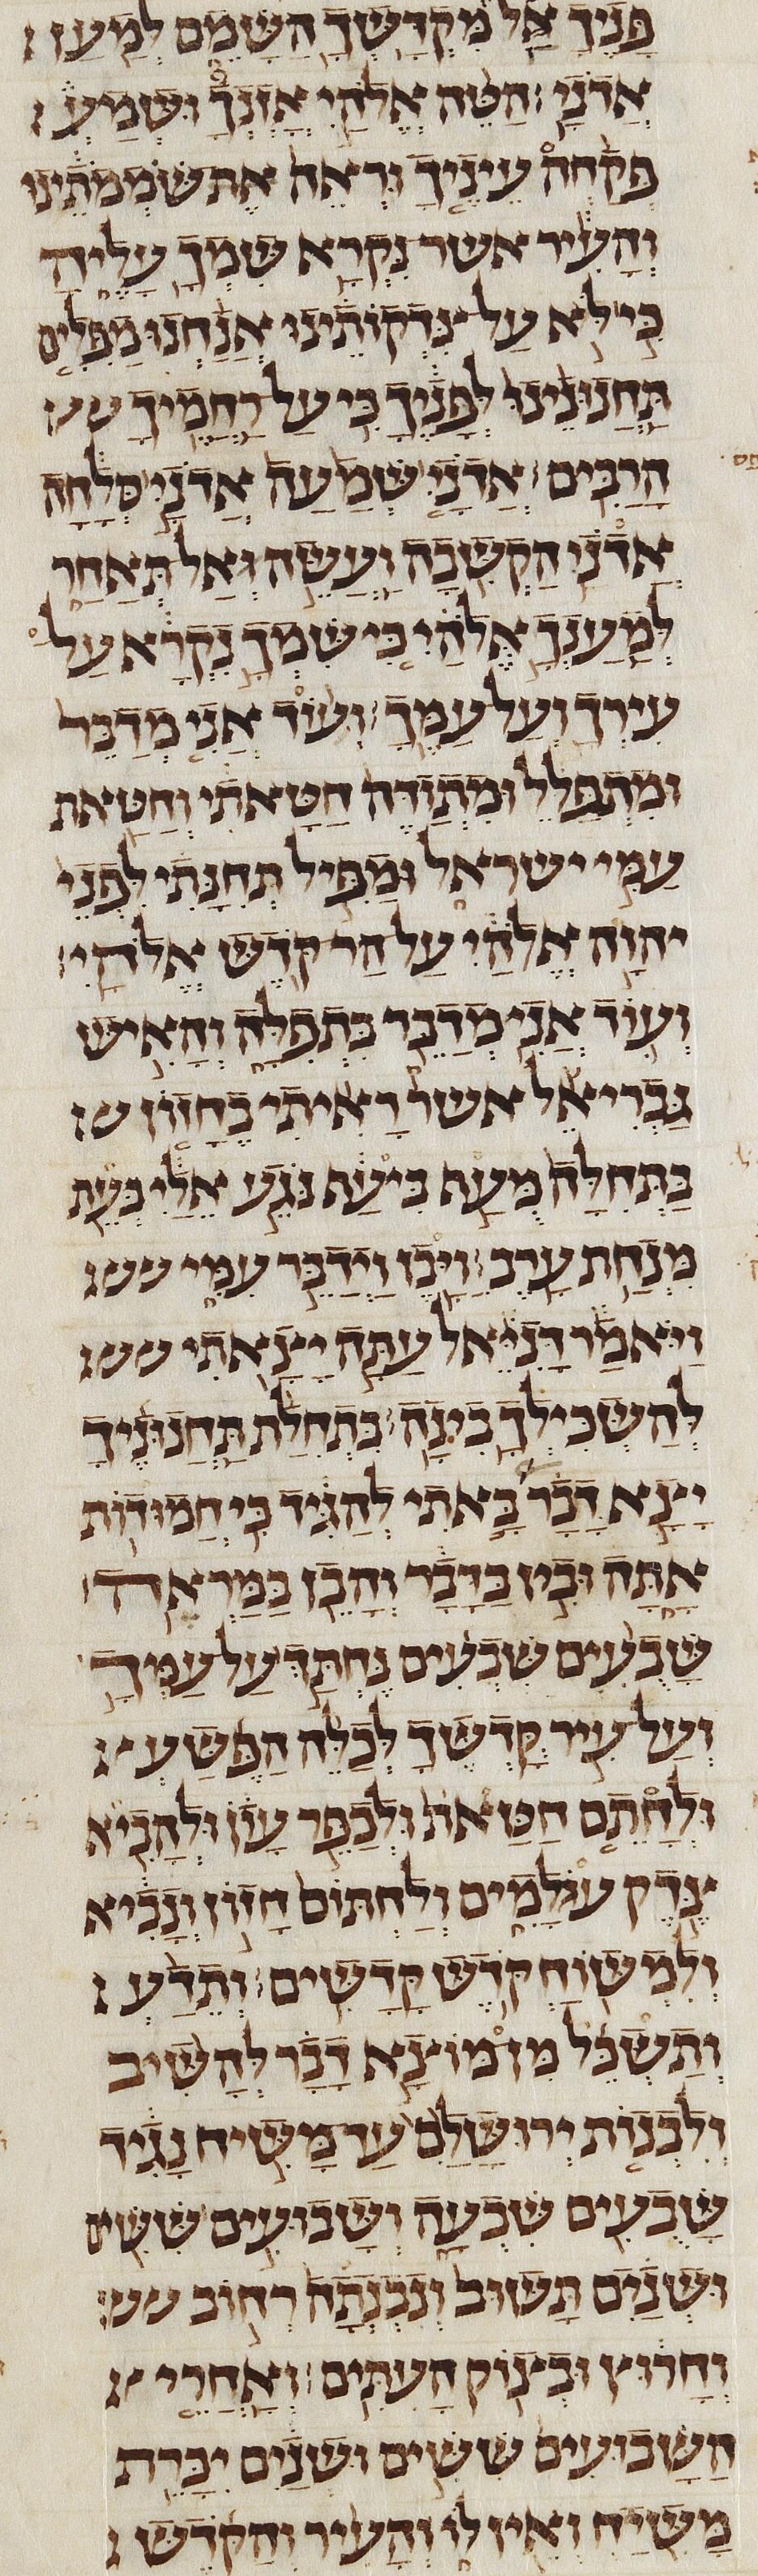 פָּנֶיךָ עַל מִקְדָּשְׁךָ הַשָּׁמֵם לְמַעַן
אֲדֹנָי׃ הַטֵּה אֱלֹהַי אָזְנְךָ וּשְׁמָע
פְּקַחה עֵינֶיךָ וּרְאֵה אֶת שֹׁמְמֹתֵינוּ
וְהָעִיר אשר נִקְרָא שִׁמְךָ עָלֶיהָ
כִּי לֹא עַל צִדְקוֹתֵינוּ אֲנַחְנוּ מַפִּלִים
תַּחֲנוּנֵינוּ לְפָנֶיךָ כִּי עַל רַחֲמֶיךָ
הָרַבִּים׃ אֲדֹנָי שְׁמָעָה אֲדֹנָי סְלָחָה
אֲדֹנָי הַקְשִׁבָה וַעֲשֵׂה וְאַל תְּאַחַר
לְמַעַנְךָ אֱלֹהַי כִּי שִׁמְךָ נִקְרָא עַל
עִירְךָ וְעַל עַמֶּךָ׃ וְעוֹד אֲנִי מְדַבֵּר
וּמִתְפַּלֵּל וּמִתְוַדֶּה חַטָּאתִי וְחַטַּאת
עַמִּי ישראל וּמַפִּיל תְּחִנָּתִי לִפְנֵי
יהוָה אֱלֹהַי עַל הַר קֹדֶשׁ אֱלֹהָי׃
וְעוֹד אֲנִי מְדַבֵּר בִּתְפִלָּה וְהָאִישׁ
גַּבְרִיאֵל אשר רָאִיתִי בֶחָזוֹן
בַּתְּחִלָּה מֻעָף בִּיעָף נֹגֵעַ אֵלַי כְּעֵת
מִנְחַת עָרֶב׃ וַיָּבֶן וַיְדַבֵּר עִמִּי
וַיֹּאמַר דָּנִיֵּאל עַתָּה יָצָאתִי
לְהַשְׂכִּילְךָ בִינָה׃ בִּתְחִלַּת תַּחֲנוּנֶיךָ
יָצָא דָבָר בָּאתִי לְהַגִּיד כִּי חֲמוּדוֹת
אָתָּה וּבִין בַּדָּבָר וְהָבֵן בַּמַּרְאֶה׃
שָׁבֻעִים שִׁבְעִים נֶחְתַּךְ עַל עַמְּךָ
וְעַל עִיר קָדְשֶׁךָ לְכַלֵּה הַפֶּשַׁע
וּלְחָתֵם חַטָּאת וּלְכַפֵּר עָוֹן וּלְהָבִיא
צֶדֶק עוֹלָמִים וְלַחְתּוֹם חָזוֹן וְנָבִיא
וְלִמְשׁוֹחַ קֹדֶשׁ קָדָשִׁים׃ וְתֵדַע
וְתַשְׂכֵּל מִן מוֹצָא דָבָר לְהָשִׁיב
וְלִבְנוֹת יְרוּשָׁלִַם עַד מָשִׁיחַ נָגִיד
שָׁבֻעִים שִׁבְעָה וְשָׁבוּעִים שִׁשִּׁים
וּשְׁנַיִם תָּשׁוּב וְנִבְנְתָה רְחוֹב
וְחָרוּץ וּבְצוֹק הָעִתִּים׃ וְאַחֲרֵי
הַשָּׁבוּעִים שִׁשִּׁים וּשְׁנַיִם יִכָּרֵת
מָשִׁיחַ וְאֵין לוֹ וְהָעִיר וְהַקֹּדֶשׁ